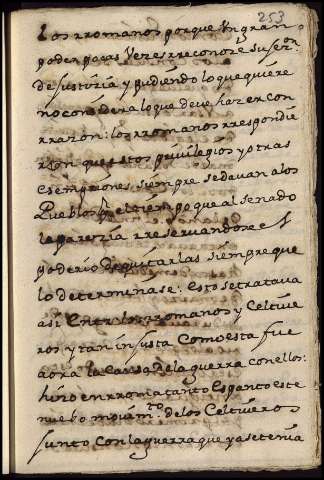 253
Los rromanos porque Un gran
poder pocas Vezes rreconoze superon
de Justizia y pudiendo lo que quiere
no considera lo que deve hazer con
rrazon: los rromanos rrespondie
rron que estos privilegios y otras
esempziones siempre se davan a los
Pueblos por el tiempo que al senado
le parezia rreservandose el
poderio de quitarlas siempre que
lo determinase: Esto se tratava
asi Entre los rromanos y Celtive
ros y tan injusta Como esta fue
aora la Causa de la guerra con ellos:
hizo en rroma tanto Espanto este
nuebo movimto de los Celtiveros
Junto Con la guerra que ya se tenia